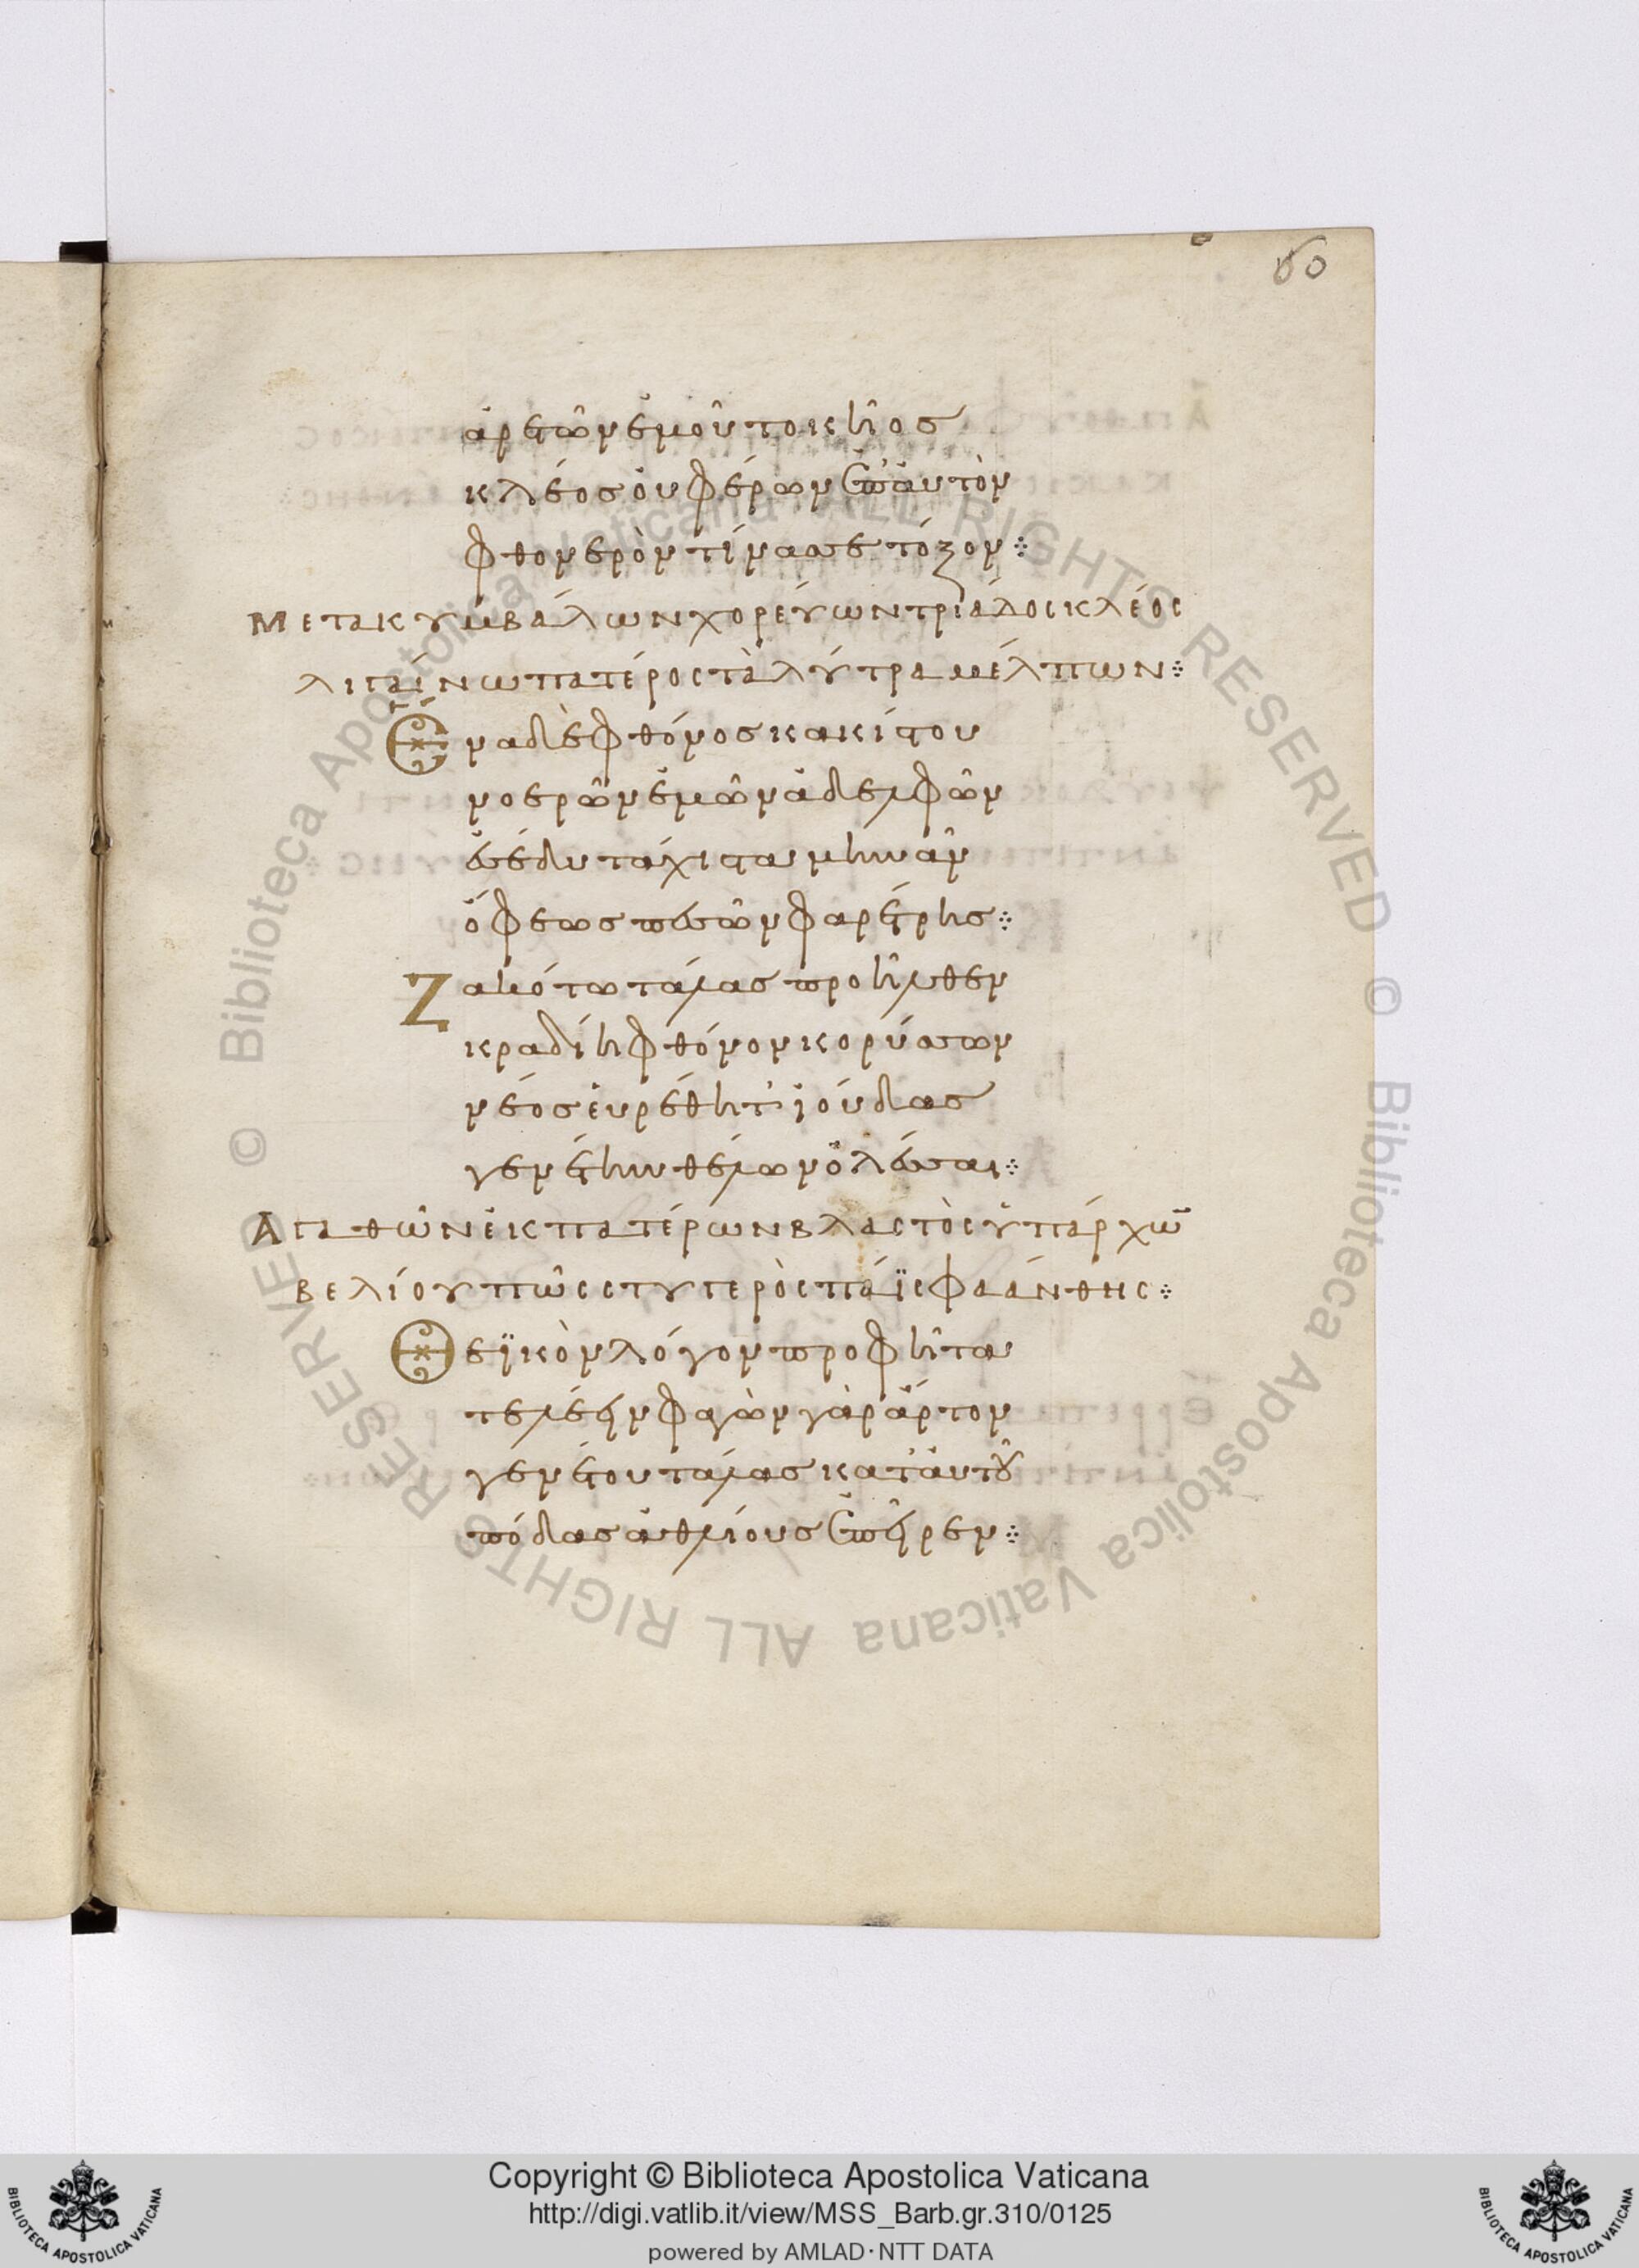 60
ἀρετῶν ἐμοῦ τοκῆος
κλέος οὐ φέρων ἐπ' αὐτὸν
φθονερὸν τίνασσε τόξον⁘
Μετακυμβάλων χορεύων τριάδος κλέος
λιγαίνω πατέρος τὰ λύτρα μέλπων⁘
Ἕνα δὲ φθόνος κακίστου
νοερῶν ἐμῶν ἀδελφῶν
ἐσέδυ τάχιστα μῆναν
ὄφεως πεσὼν φαρέτρης⁘
Ζακότω τάλας προῆλθεν
κραδίη φθόνον κορύσσων
νέος εὑρέθη τ' ἰούδας
γενέτην θέλων ὀλέσσαι⁘
Αγαθῶν ἐκ πατέρων βλαστὸς ὑπάρχων
βελίου πῶς στυγερὸς πάϊς φαάνθης⁘
Θεϊκὸν λόγον προφῆτα
τελέειν φαγὼν γὰρ ἄρτον
γενέτου τάλας κατ' αὐτοῦ
πόδας ἀθλίους ἐπῆρεν⁘
Copyright © Biblioteca Apostolica Vaticana
http://digi.vatlib.it/view/MSS_Barb.gr.310/0125
powered by AMLAD·NTT DATA
BIBLIOTECA APOSTOLICA VATICANA
BIBLIOTECA APOSTOLICA VATICANA
© Biblioteca Apostolica Vaticana ALL RIGHTS RESERVED © Biblioteca Apostolica Vaticana ALL RIGHTS RESERVED